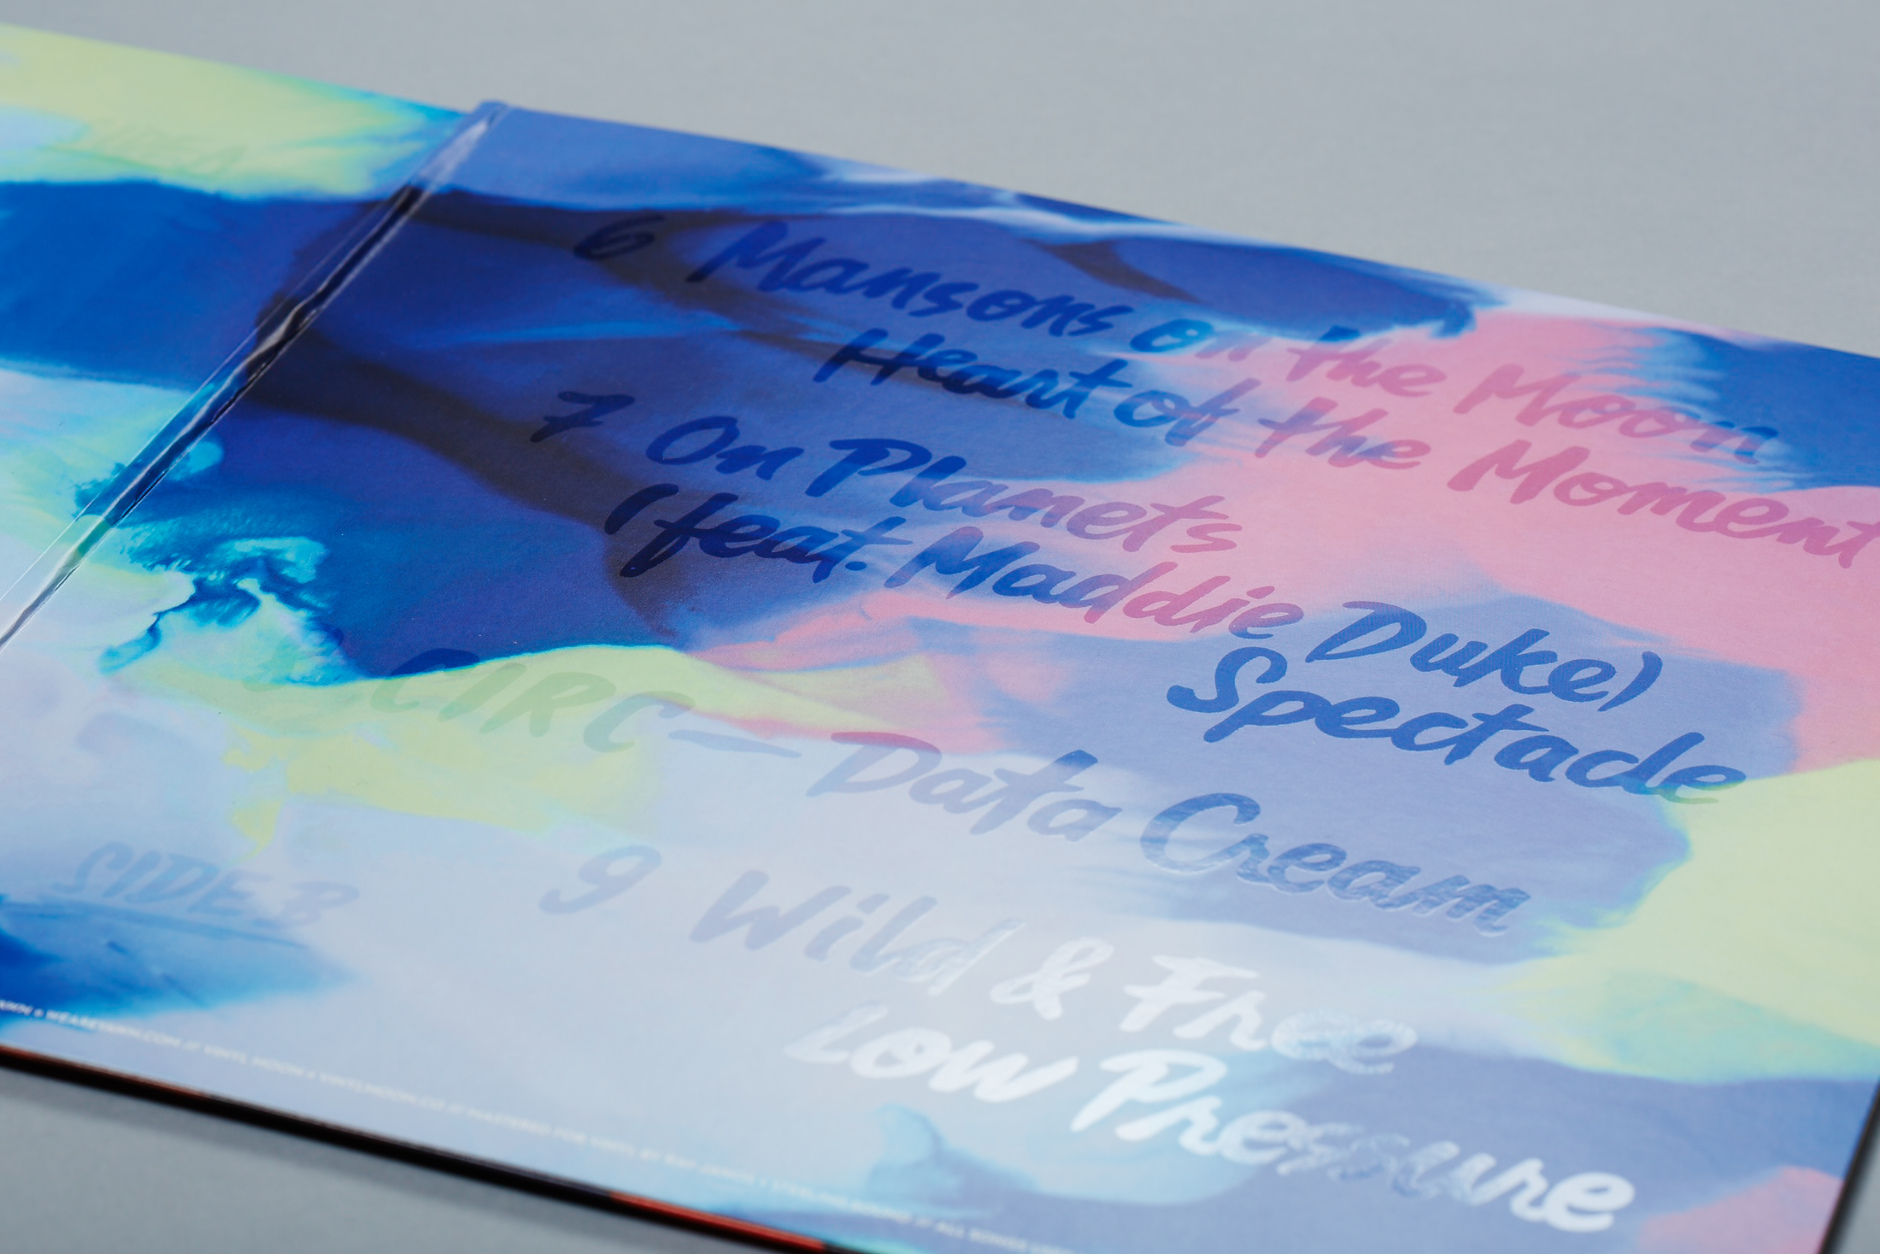 6 Mansons on the Moon
Heart of the Moment
7 On Planets
(feat. Maddie Duke)
Spectacle
CIRC — Data Cream
9 Wild & Free
Low Pressure
SIDE B